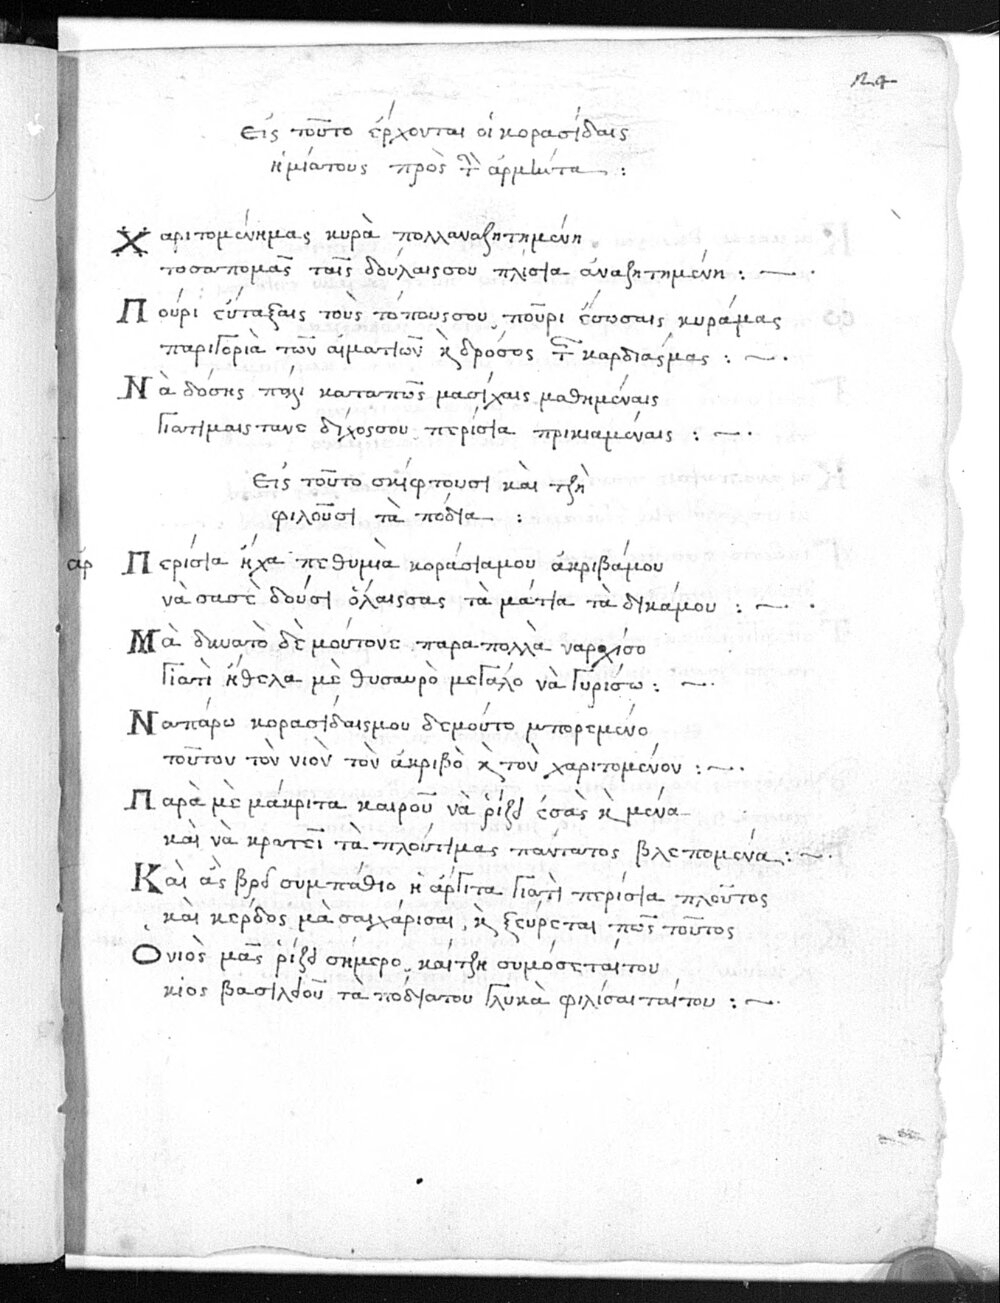 124
Εἰς τοῦτο ἔρχονται οἱ κορασίδαις
ἡ μιάτους πρὸς τὴ ἀρμίντα :
Χαριτομένημας κυρὰ πολλαναζητημένη
τοσαπομᾶς ταῖς δούλαιςσου πλίσια ἀναζητημένη : ~ .
Πούρι εὔταξαις τοὺς τόπουςσου, ποῦρι ἔσωσαις κυράμας
παριγοριὰ τῶν αἱματιῶν κ δρόσος τῆς καρδιάςμας : ~ .
Νὰ δόσης πάλι καταπῶς μασίχαις μαθημέναις
γιατίμαιςτανε δίχοςσου περίσια πρικιαμέναις : ~ .
Εἰς τοῦτο σκύφτουσι καὶ τζὴ
φιλοῦσι τὰ πόδια :
ἀρ Περίσια ἦχα πεθυμιὰ κοράσιαμου ἀκριβάμου
νὰ σασὲ δοῦσι ὅλαιςσας τὰ μάτια τὰ δικάμου : ~ .
Μὰ δυνατὸ δὲ μούτονε παραπολλὰ ναρχίσο
γιατὶ ἤθελα μὲ θυσαυρὸ μεγάλο νὰ γυρίσω : ~ .
Ναπάρω κορασίδαιςμου δεμοῦτο μπορεμένο
τοῦτον τὸν νιὸν τὸν ἀκριβὸ κ τὸν χαριτομένον : ~ .
Παρὰ μὲ μάκριτα καιροῦ νὰ ὁρίζει ἐσὰς κ μένα
καὶ νὰ κρατεῖ τὰ πλούτιμας πάντατος βλεπομένα : ~ .
Καὶ ἂς βρεῖ συμπάθιο ἡ ἄργιτα γιατὶ περίσια πλοῦτος
καὶ κέρδος μὰ σαιχάρισαι, κ ξεύρεται πῶς τοῦτος
Ὁ νιὸς μᾶς ὁρίζει σήμερο, καιτζη συμόσεταίτου
κιος βασιλέου τὰ πόδιατου γλυκὰ φιλίσαιταίτου : ~ .